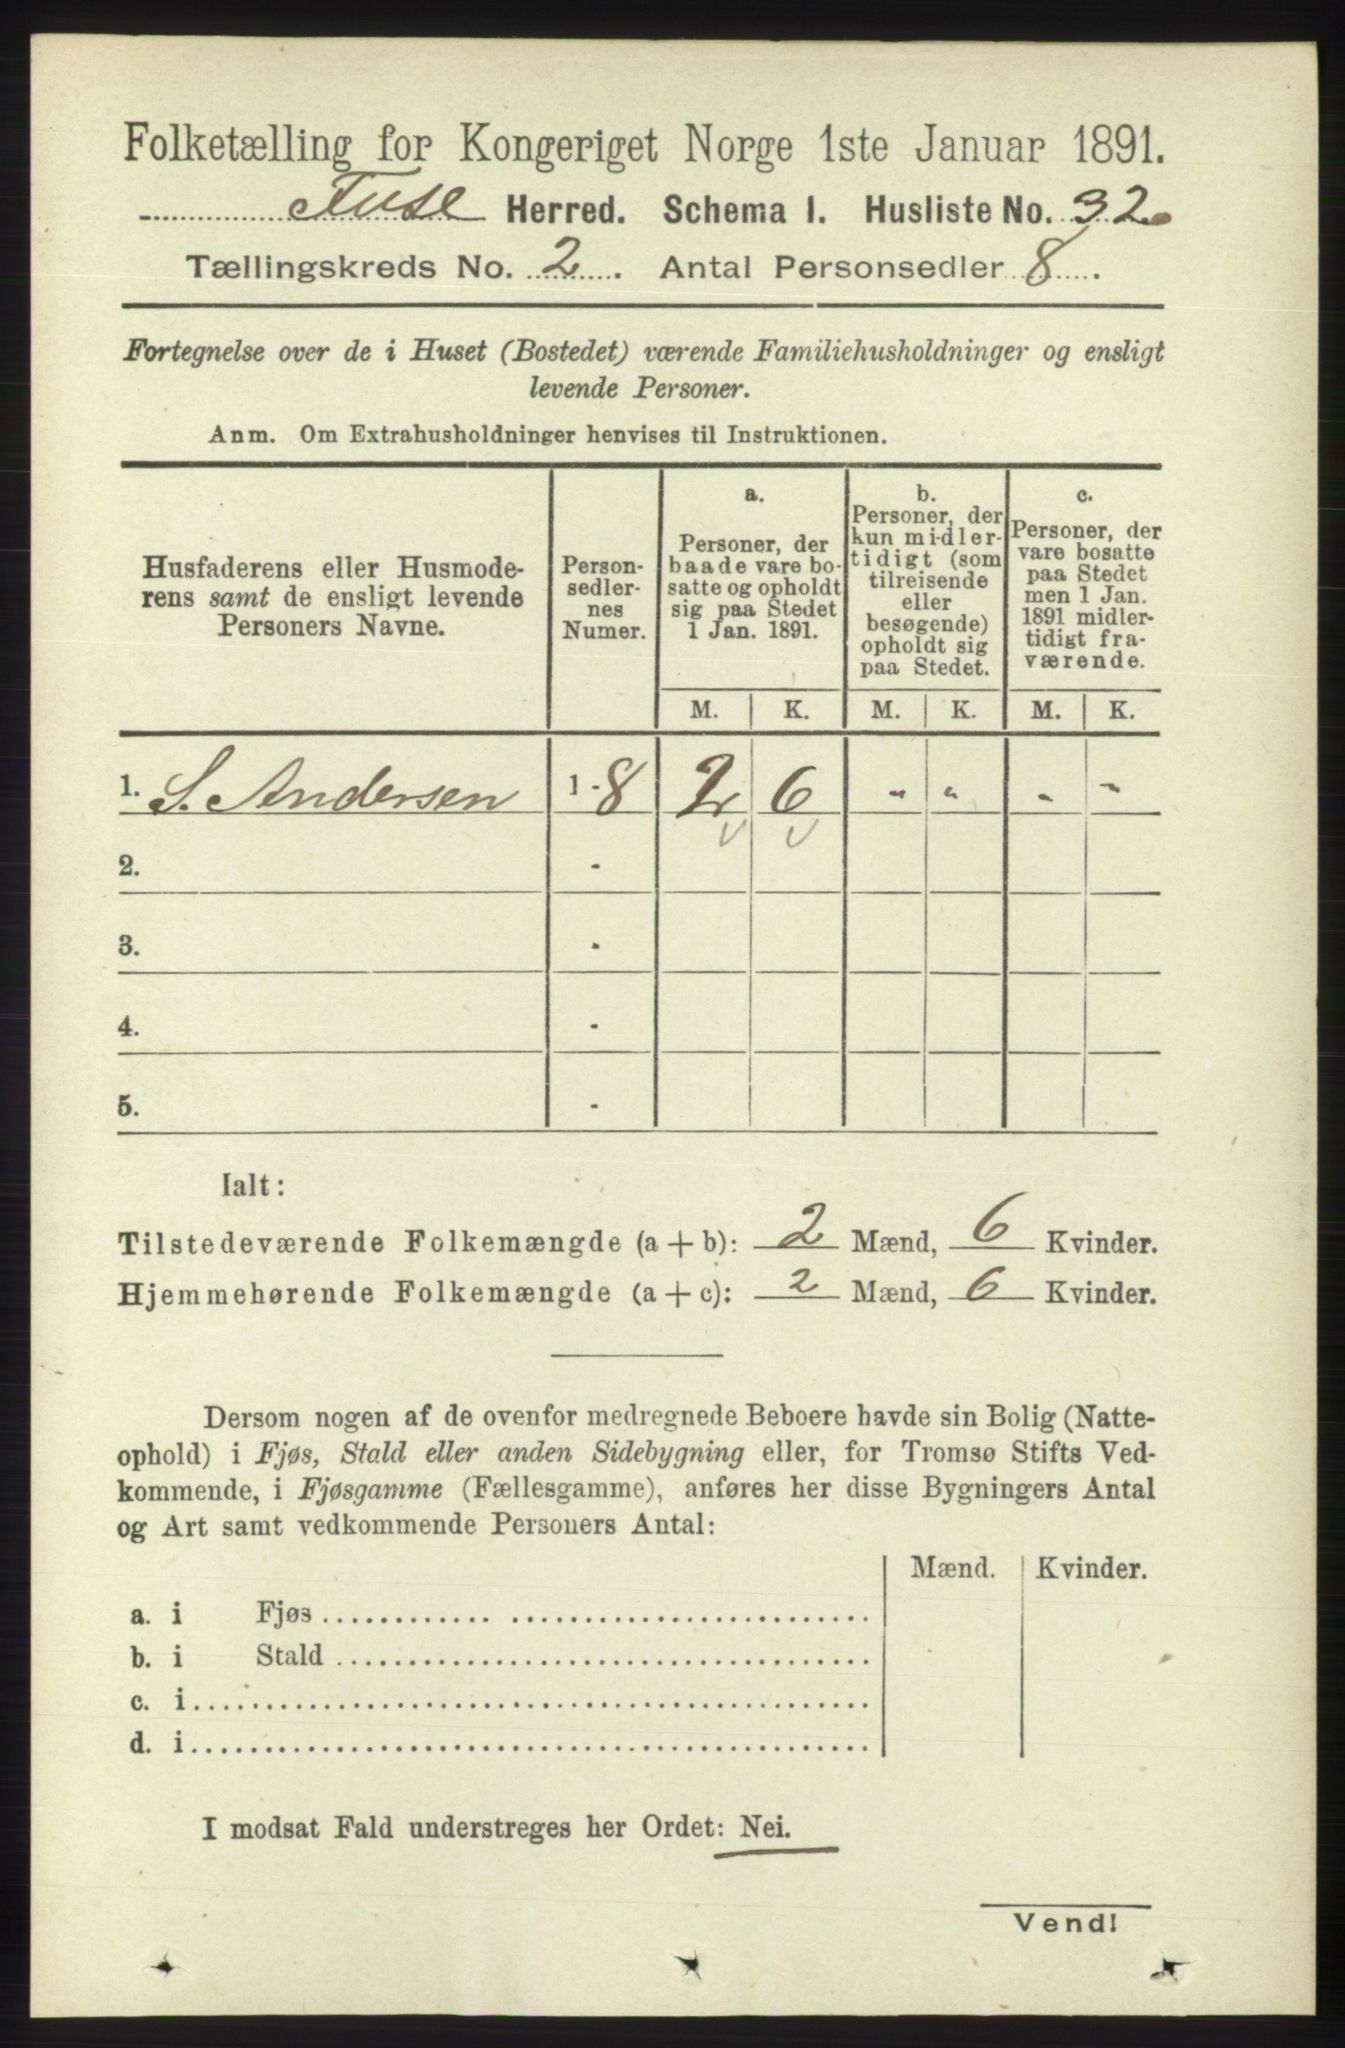 Folketælling for Kongeriget Norge 1ste Januar 1891.
Fuse Herred. Schema I. Husliste No. 32.
Tællingskreds No. 2. Antal Personsedler 8.
Fortegnelse over de i Huset (Bostedet) værende Familiehusholdninger og ensligt
levende Personer.
Anm. Om Extrahusholdninger henvises til Instruktionen.
Husfaderens eller Husmode-
rens samt de ensligt levende
Personers Navne.
Person-
sedler-
nes
Numer.
a.
Personer, der
baade vare bo-
satte og opholdt
sig paa Stedet
1 Jan. 1891.
b.
Personer, der
kun midler-
tidigt (som
tilreisende
eller
besøgende)
opholdt sig
paa Stedet.
c.
Personer, der
vare bosatte
paa Stedet
men 1 Jan.
1891 midler-
tidigt fra-
værende.
M. K. M. K. M. K.
1. S. Andersen 1 - 8 2 6 " " - -
2. -
3. -
4. -
5. -
Ialt:
Tilstedeværende Folkemængde (a + b): 2 Mænd, 6 Kvinder.
Hjemmehørende Folkemængde (a + c): 2 Mænd, 6 Kvinder.
Dersom nogen af de ovenfor medregnede Beboere havde sin Bolig (Natte-
ophold) i Fjøs, Stald eller anden Sidebygning eller, for Tromsø Stifts Ved-
kommende, i Fjøsgamme (Fællesgamme), anføres her disse Bygningers Antal
og Art samt vedkommende Personers Antal:
Mænd. Kvinder.
a. i Fjøs
b. i Stald
c. i
d. i
I modsat Fald understreges her Ordet: Nei.
Vend!